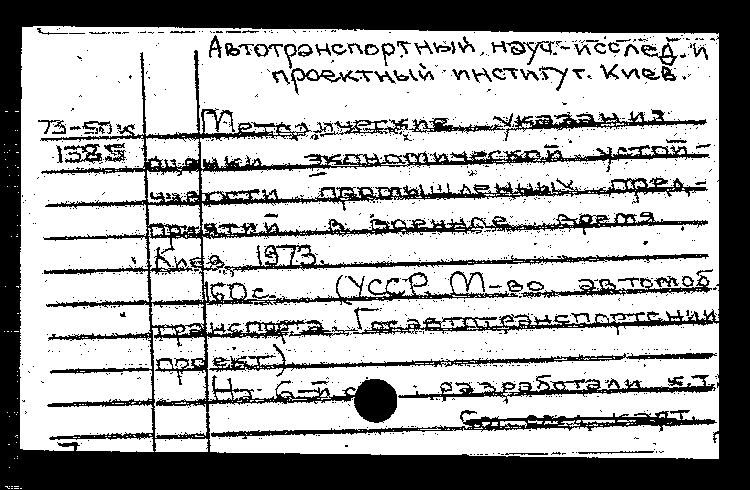 Автотранспортный науч.-исслед. и
проектный институт. Киев.
73-50к
1385
Методические указания
оценки экономической устой-
чивости промышленных пред-
приятий в военное время.
Киев 1973.
160 с. (УССР. М-во автомоб
транспорта. Госавтотранспортснии
проект)
На 6-й с разработали к.т.
См. след. карт.